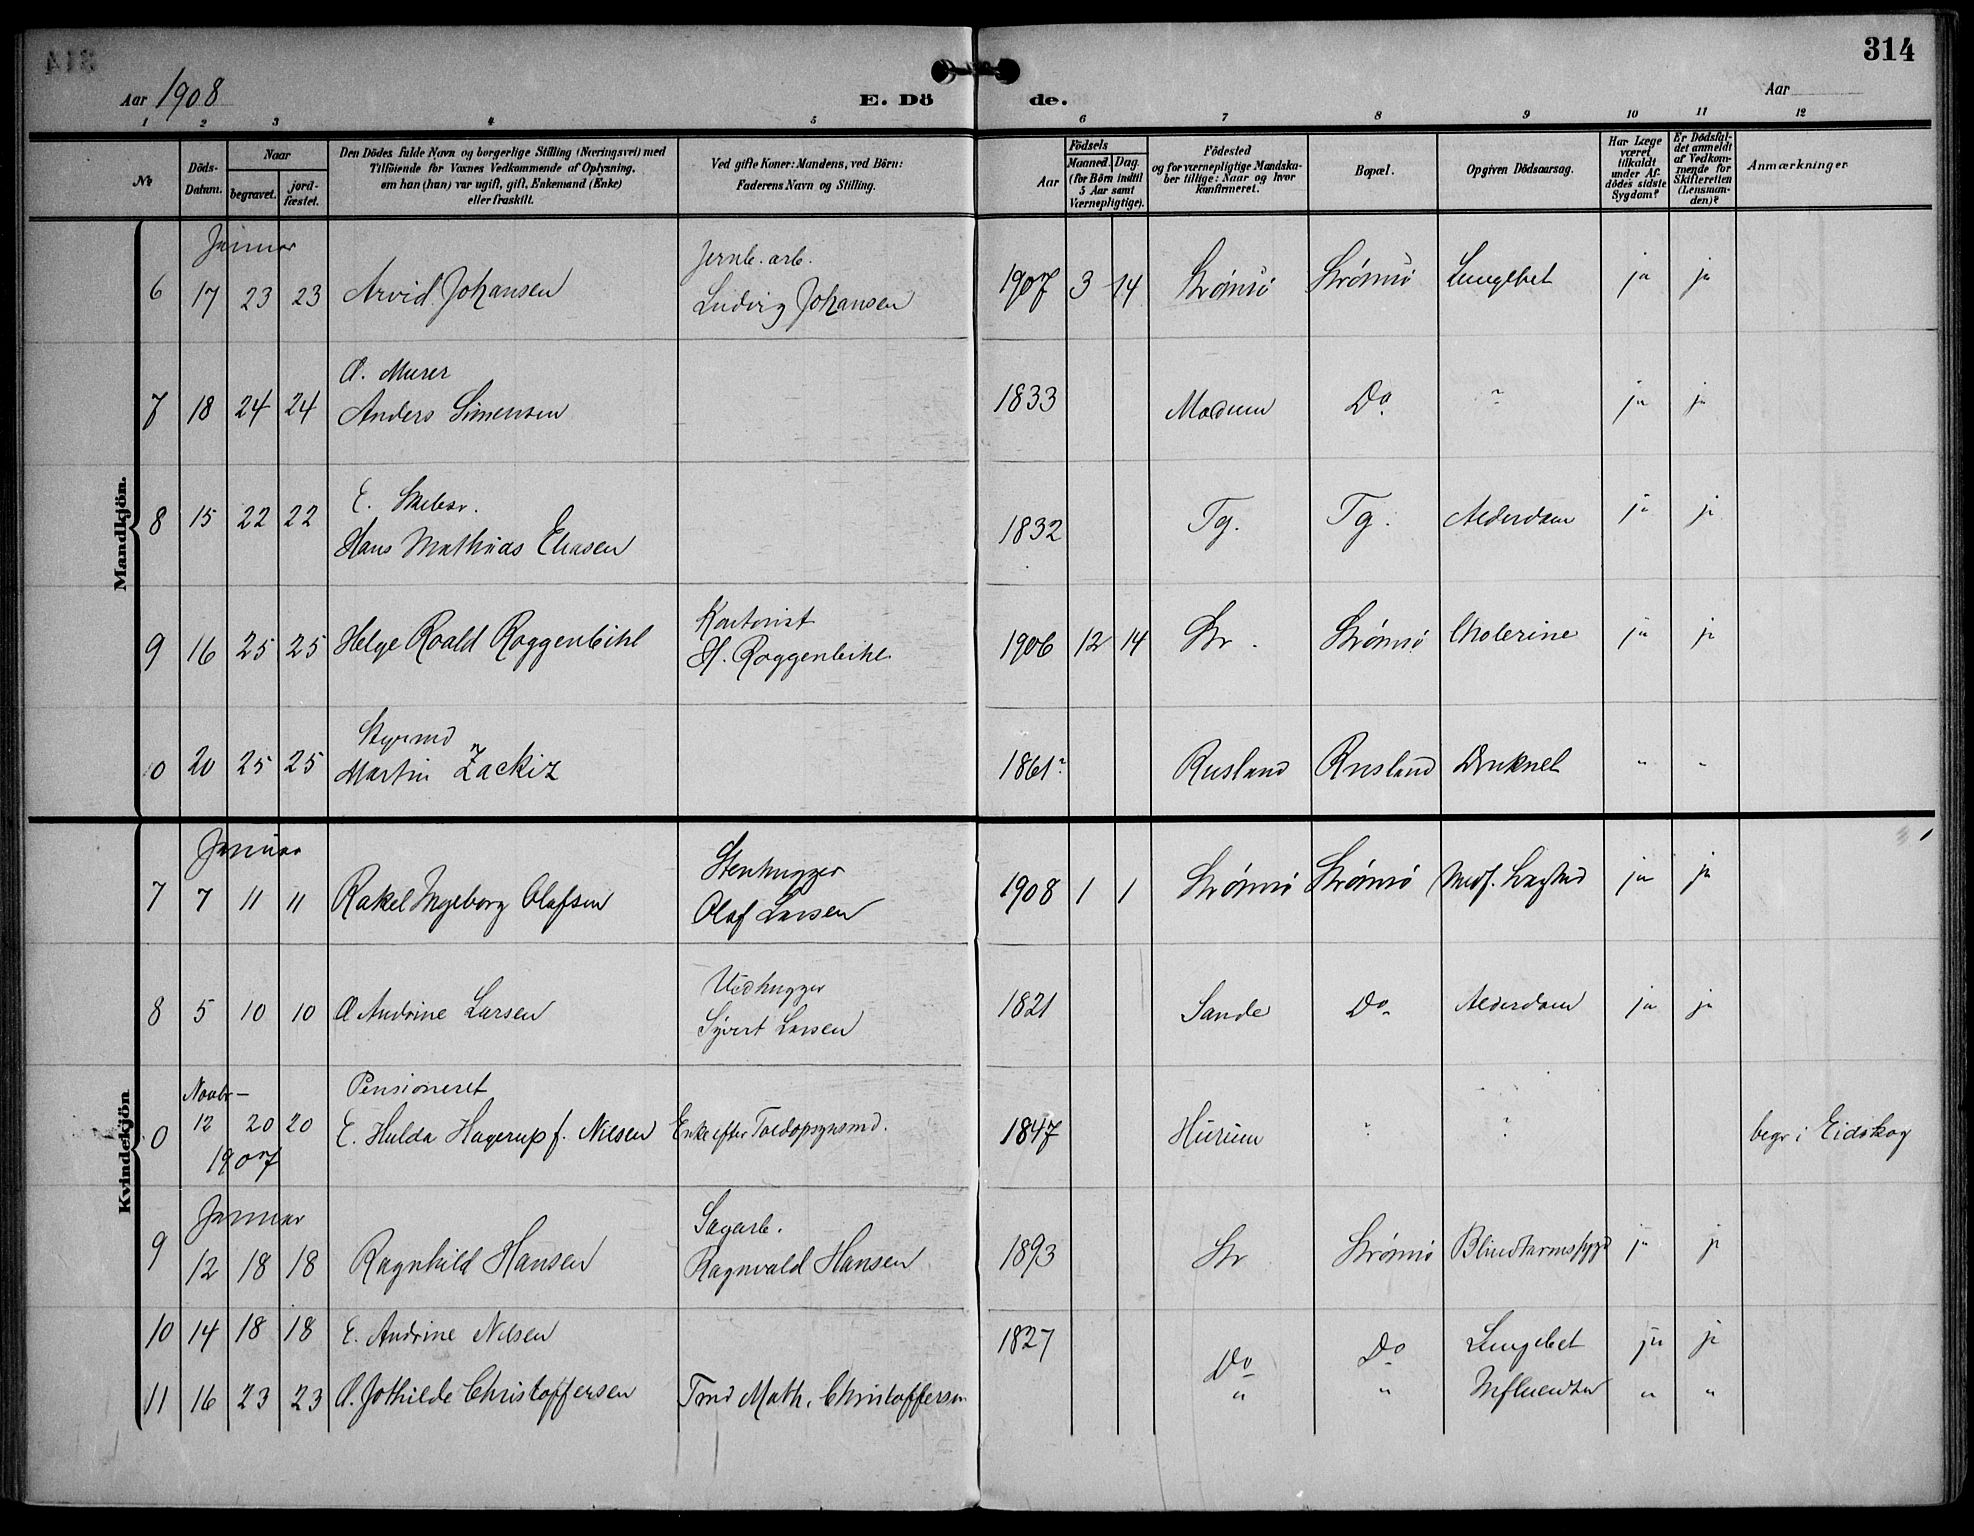 314
Aar 1908
E. Döde.
Aar
1 2 3 4 5 6 7 8 9 10 11 12
No
Döds-Datum.
Naar
begravet.
jord-fæstet.
Den Dödes fulde Navn og borgerlige Stilling (Næringsvei) med
Tilföiende for Voxnes Vedkommende af Oplysning,
om han (hun) var ugift, gift, Enkemand (Enke)
eller fraskilt.
Ved gifte Koner: Mandens, ved Börn:
Faderens Navn og Stilling.
Födsels
Aar
Maaned. Dag
(for Börn indtil
5 Aar samt
Værnepligtige).
Födested
og for værnepligtige Mandska-
ber tillige: Naar og hvor
konfirmeret.
Bopæl.
Opgiven Dödsaarsag.
Har Læge
været
tilkaldt
under Af-
dödes sidste
Sygdom?
Er Dödsfal-
det anmeldt
af Vedkom-
mende for
Skifteretten
(Lensman-
den)?
Anmærkninger
Mandkjön.
Januar
Jernb. arb.
6 17 23 23 Arvid Johansen Ludvig Johansen 1907 3 14 Strömsö Strömsö Lungebet ja ja
Murer
7 18 24 24 Anders Simensen 1833 Modum Do " ja ja
E.
8 15 22 22 Hans Mathias Eliasen 1832 Tg. Tg. Alderdom ja ja
Kontorist
9 16 25 25 Helge Roald Roggenbihl H. Roggenbihl 1906 12 14 Str. Strömsö Cholerine ja ja
Styrmd
0 20 25 25 Martin Zackiz 1861? Rusland Rusland Druknet " "
Kvindekjön
Januar
Stenhugger
7 7 11 11 Rakel Ingeborg Olafsen Olaf Larsen 1908 1 1 Strömsö Strömsö Medf. ja ja
Vedhugger
8 5 10 10 Andrine Larsen Syvert Larsen 1821 Sande Do Alderdom ja ja
Novbr
Pensioneret
0 12 20 20 E. Hulda Hagerup f. Nilsen Enke efter Toldopsynsmd. 1847 Hurum " " begr i Eidskog
1907
Januar
Sagarb.
9 12 18 18 Ragnhild Hansen Ragnvald Hansen 1893 Str Strömsö Blindtarmssygd ja ja
10 14 18 18 E. Andrine Nilsen 1827 Do Do Lungebet ja ja
11 16 23 23 Jothilde Christoffersen Tmd Math. Christoffersen " " Influentsa " "